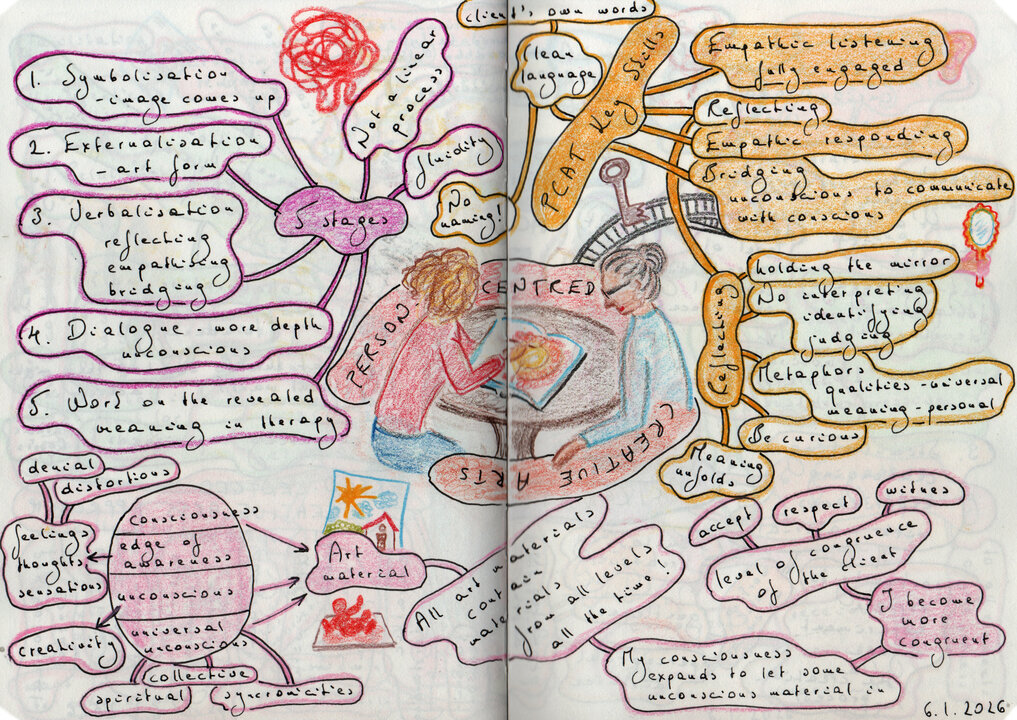 1. Symbolisation
- image comes up
2. Externalisation
- art form
3. Verbalisation
reflecting
empathising
bridging
4. Dialogue - more depth
unconscious
5. Work on the revealed
meaning in therapy
5 stages
Not a linear
process
fluidity
client's own words
Clean
language
No
naming!
PCAT Key Skills
Empathic listening
fully engaged
Reflecting
Empathic responding
Bridging
unconscious to communicate
with conscious
Reflecting
holding the mirror
No interpreting
identifying
judging
Metaphors
qualities - universal
meaning - personal
Be curious
Meaning
unfolds
PERSON
CENTRED
CREATIVE
ARTS
denial
distortions
feelings
thoughts
sensations
creativity
consciousness
edge of
awareness
unconscious
universal
unconscious
collective
spiritual
syncronicities
Art
material
All art materials
from all levels
all the time!
accept
respect
witnes
level of congruence
of the client
I become
more
congruent
My consciousness
expands to let some
unconscious material in
6.1.2026.